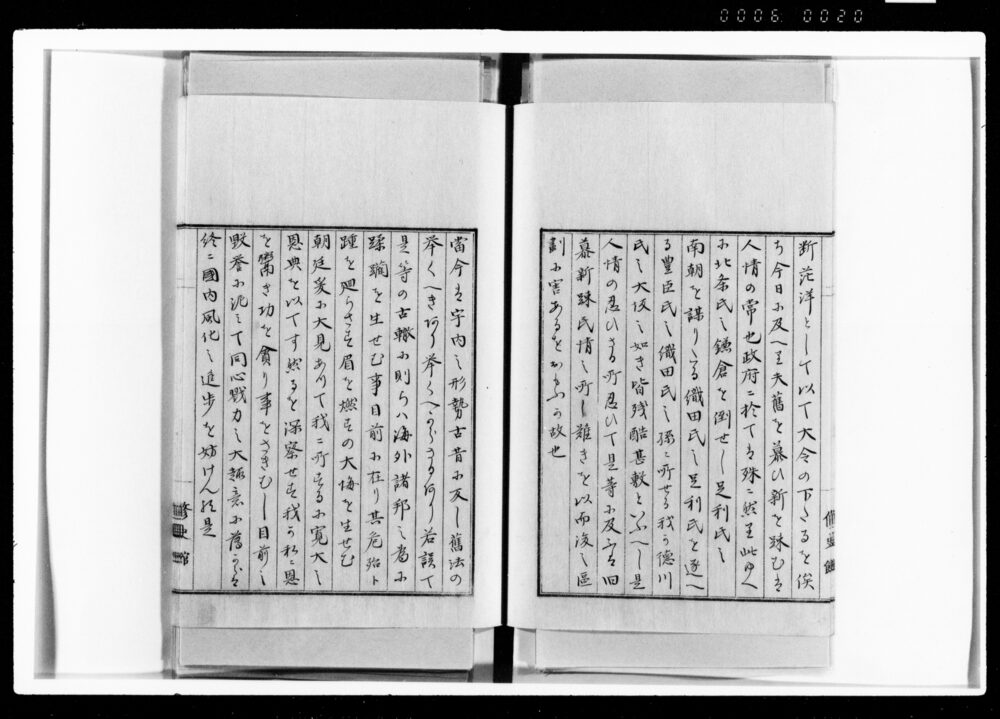 0006 0020
断茫洋として以て大令の下たるを俟
ち今日に及へり夫舊を慕ひ新を疎むは
人情の常也政府ニ於てる殊ニ然り此ゆへ
に北条氏之鎌倉を倒せし足利氏之
南朝を謀りたる織田氏之足利氏を逐へ
る豊臣氏之織田氏之孫ニ所せる我か徳川
氏之大坂之如き皆残酷甚敷といふへし是
人情の忍ひさる所忍ひて是等に及
慕新疎民情之所し難きを以而後之區
劃に害あるをおもふか故也
當今は宇内之形勢古昔に反し舊法の
挙くへきあり挙くへからさるあり若誤て
是等の古轍に則らハ海外諸邦之為に
蹂躙を生せむ事目前に在り其危殆ト
踵を廻らさす眉を燃すの大悔を生せむ
朝廷爰に大見ありて我ニ所するに寛大之
恩典を以てす然るを深察せす我か私ニ恩
を鬻き功を貪り事をさきむし目前之
毀誉に泥ミて同心戮力之大趣意に
終ニ國内風化之進歩を妨けん
修史館
修史館